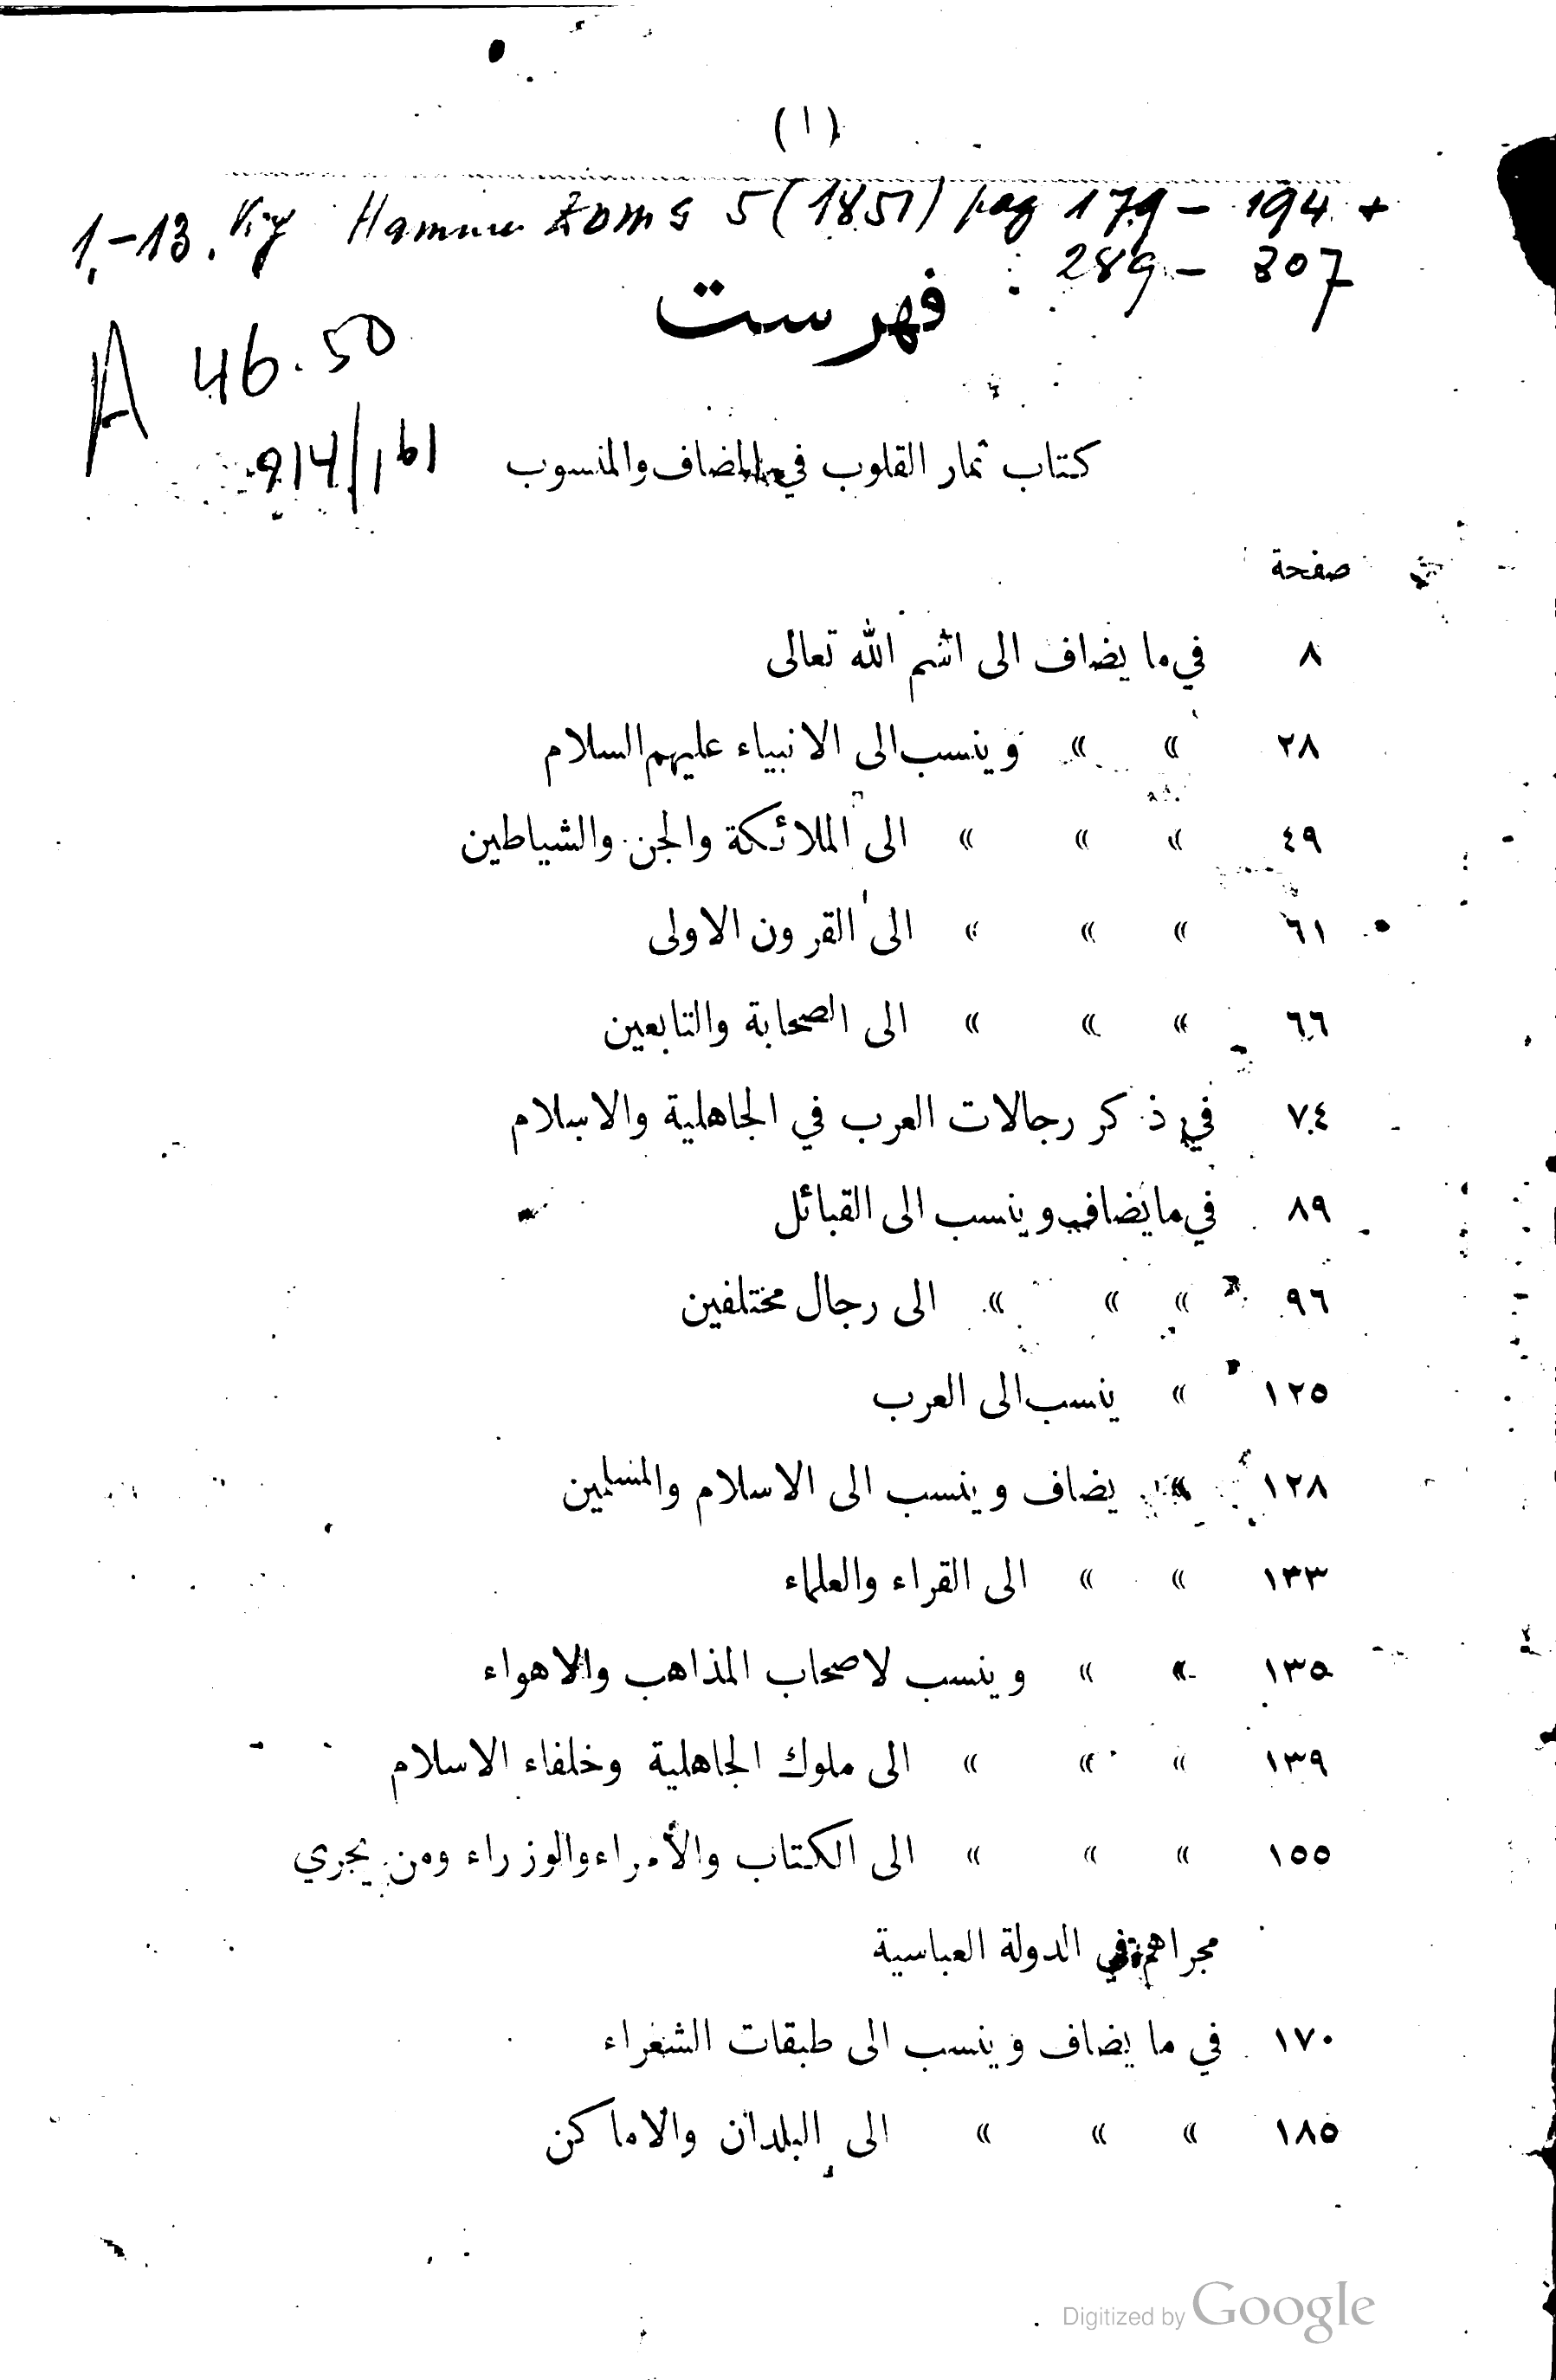 (١)
1.-13. Vgl Hammer ZDMG 5 (1851) pag 179 - 194 +
289 - 307
فهرست
A 46.50
كتاب ثمار القلوب في المضاف والمنسوب
914/161
صفحة
٨ في ما يضاف الى اسم الله تعالى
٢٨ » » وينسب الى الانبياء عليهم السلام
٤٩ » » » الى الملائكة والجن والشياطين
٦١ » » » الى القرون الاولى
٦٦ » » » الى الصحابة والتابعين
٧٤ في ذكر رجالات العرب في الجاهلية والاسلام
٨٩ في ما يضاف وينسب الى القبائل
٩٦ » » » الى رجال مختلفين
١٢٥ » ينسب الى العرب
١٢٨ » يضاف وينسب الى الاسلام والمسلمين
١٣٣ » » الى القراء والعلماء
١٣٥ » » وينسب لاصحاب المذاهب والاهواء
١٣٩ » » » الى ملوك الجاهلية وخلفاء الاسلام
١٥٥ » » » الى الكتاب والأمراء والوزراء ومن يجري
مجراهم في الدولة العباسية
١٧٠ في ما يضاف وينسب الى طبقات الشعراء
١٨٥ » » » الى البلدان والاماكن
Digitized by Google